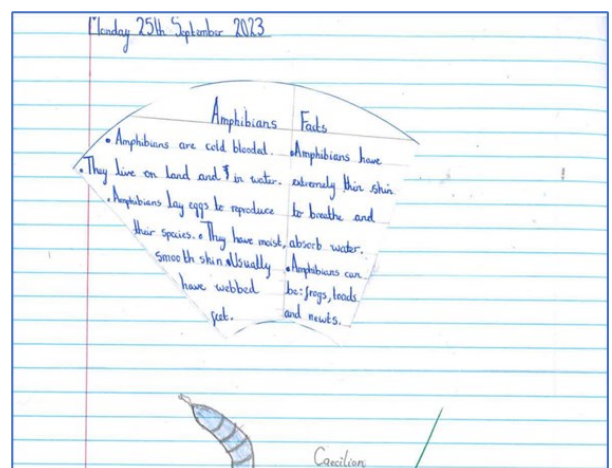 Monday 25th September 2023
Amphibians Facts
• Amphibians are cold blooded.
• They live on land and in water.
• Amphibians lay eggs to reproduce
their species. • They have moist,
smooth skin. • Usually
have webbed
feet.
• Amphibians have
extremely thin skin
to breathe and
absorb water.
• Amphibians can
be: frogs, toads
and newts.
Caecilian